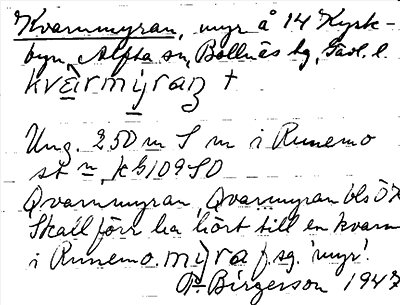 Kvarnmyran, myr å 14 Kyrk-
byn, Alfta sn, Bollnäs tg, Gävl. l.
Ung. 250 m S m i Runemo
st n, kb 109 SO
Qvarnmyran, Qvarnmyran bls ÖK
Skall förr ha hört till en kvarn
i Runemo. myra f. sg. 'myr'.
P. Birgerson 1947